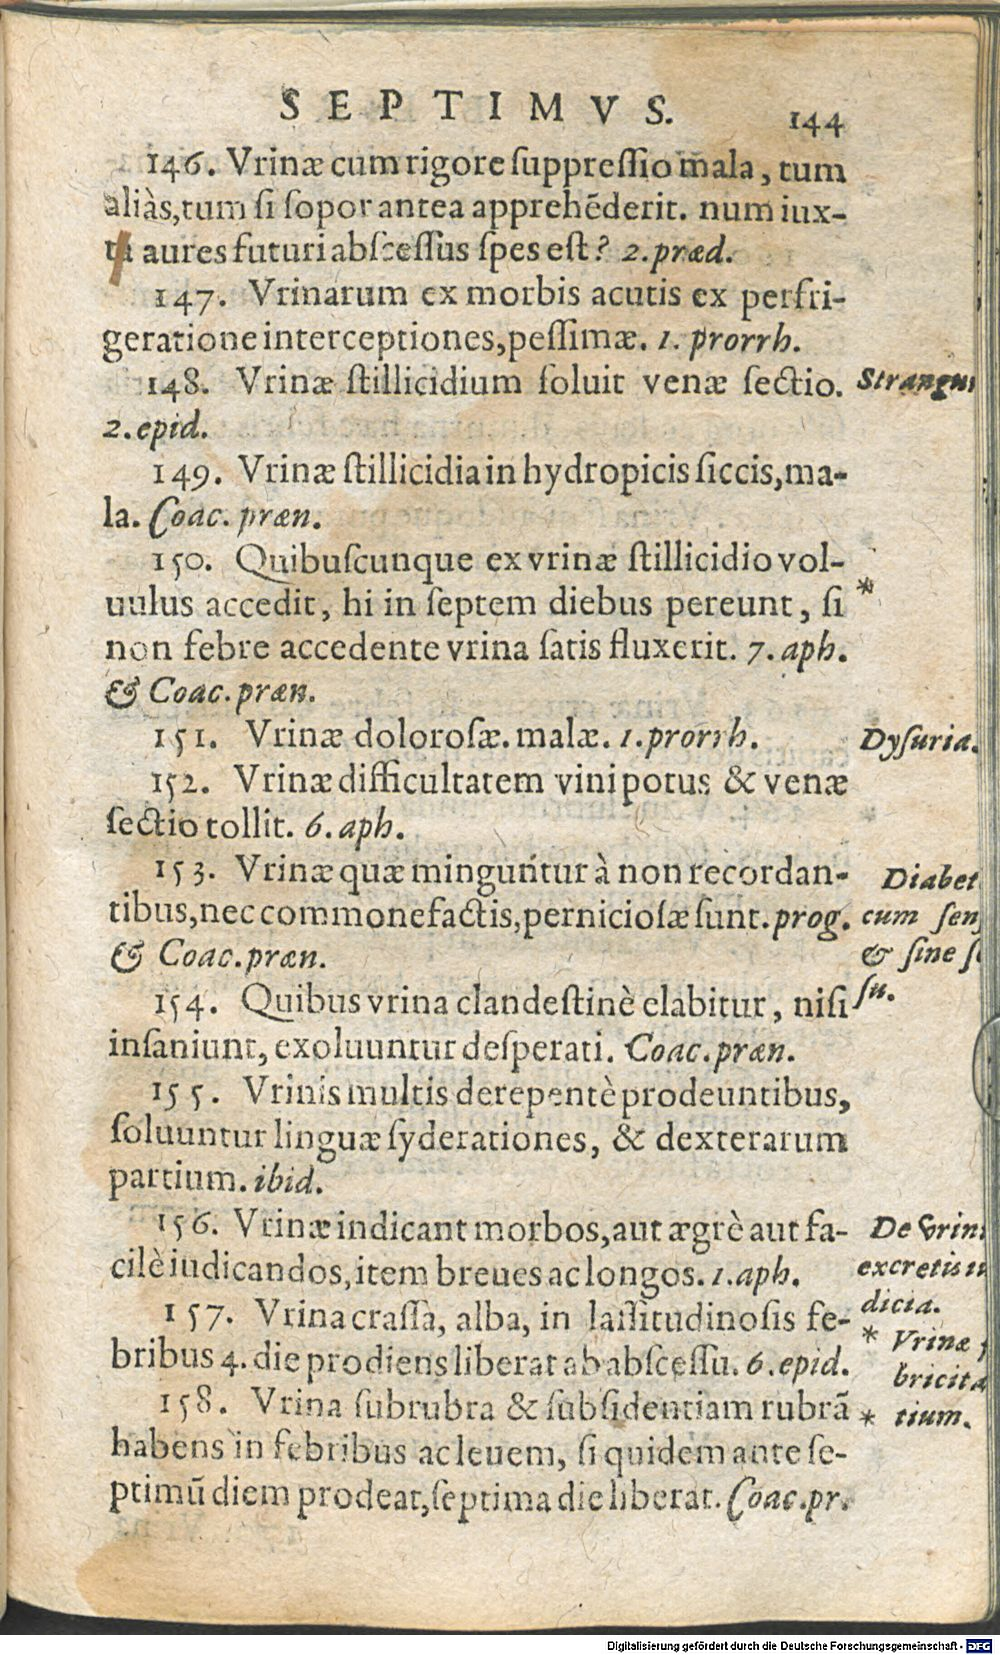 SEPTIMVS. 144
146. Vrinæ cum rigore ſuppreſſio mala, tum
aliàs, tum ſi ſopor antea apprehēderit. num iux-
ta aures futuri abſceſſus ſpes eſt? 2. præd.
147. Vrinarum ex morbis acutis ex perfri-
geratione interceptiones, peſſimæ. 1. prorrh.
148. Vrinæ ſtillicidium ſoluit venæ ſectio.
Strangu
2. epid.
149. Vrinæ ſtillicidia in hydropicis ſiccis, ma-
la. Coac. præn.
150. Quibuſcunque ex vrinæ ſtillicidio vol-
uulus accedit, hi in ſeptem diebus pereunt, ſi
*
non febre accedente vrina ſatis fluxerit. 7. aph.
& Coac. præn.
151. Vrinæ doloroſæ. malæ. 1. prorrh.
Dyſuria.
152. Vrinæ difficultatem vini potus & venæ
ſectio tollit. 6. aph.
153. Vrinæ quæ minguntur à non recordan-
tibus, nec commonefactis, pernicioſæ ſunt. prog.
& Coac. præn.
Diabet
cum ſen
& ſine ſ
ſu.
154. Quibus vrina clandeſtinè elabitur, niſi
inſaniunt, exoluuntur deſperati. Coac. præn.
155. Vrinis multis derepentè prodeuntibus,
ſoluuntur linguæ ſyderationes, & dexterarum
partium. ibid.
156. Vrinæ indicant morbos, aut ægrè aut fa-
cilè iudicandos, item breues ac longos. 1. aph.
De vrin
excretis
dicia.
157. Vrina craſſa, alba, in laſſitudinoſis fe-
bribus 4. die prodiens liberat ab abſceſſu. 6. epid.
* Vrinæ
bricita
158. Vrina ſubrubra & ſubſidentiam rubrā
* tium.
habens in febribus ac leuem, ſi quidem ante ſe-
ptimū diem prodeat, ſeptima die liberat. Coac. pr.
Digitalisierung gefördert durch die Deutsche Forschungsgemeinschaft - DFG